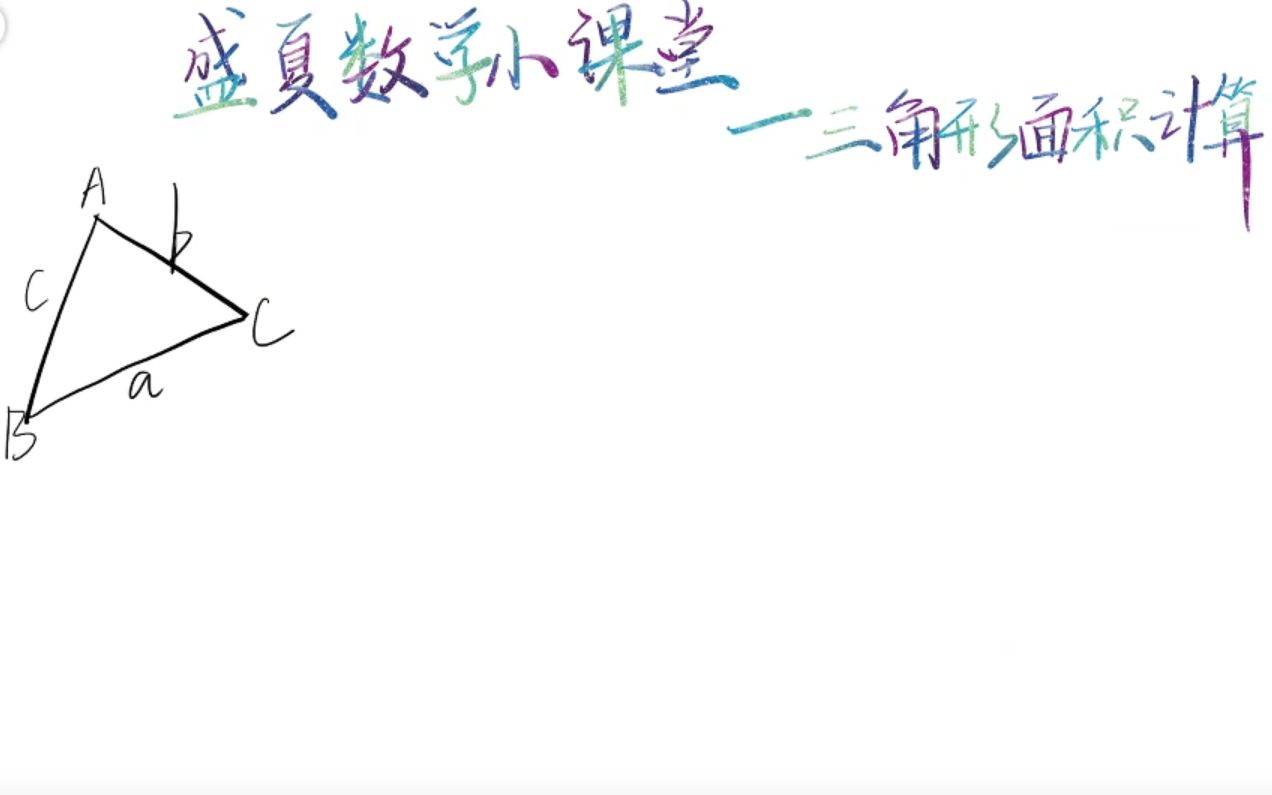 盛夏数学小课堂
一三角形面积计算
A
b
c
C
a
B